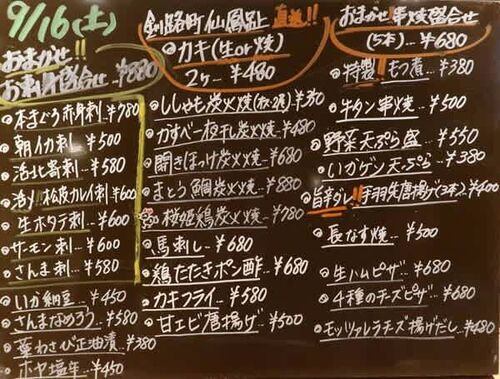 9/16(土)
おまかせ!!
お刺身盛合せ ¥880
本まぐろ赤身刺 ¥780
朝イカ刺… ¥500
活北寄刺… ¥580
活〆松皮カレイ刺 ¥600
生ホタテ刺… ¥600
サーモン刺… ¥600
さんま刺… ¥580
いか納豆… ¥450
さんまなめろう… ¥580
葉わさび正油漬… ¥380
ホヤ塩辛… ¥450
釧路町仙鳳趾 直送!!
カキ(生or焼)
2ヶ… ¥480
ししゃも炭火焼
かすべ一夜干炭火焼… ¥480
開きほっけ炭火焼… ¥680
まとう鯛炭火焼… ¥880
桜姫鶏炭火焼… ¥780
馬刺し… ¥680
鶏たたきポン酢… ¥680
カキフライ… ¥580
甘エビ唐揚げ… ¥500
おまかせ!!串焼盛合せ
(5本)… ¥680
特製!!もつ煮… ¥380
牛タン串焼… ¥500
野菜天ぷら盛… ¥550
いかゲン天ぷら… ¥380
旨辛ダレ!!手羽先唐揚げ(3本) ¥400
長なす焼… ¥500
生ハムピザ… ¥680
4種のチーズピザ… ¥680
モッツァレラチーズ揚げだし… ¥480